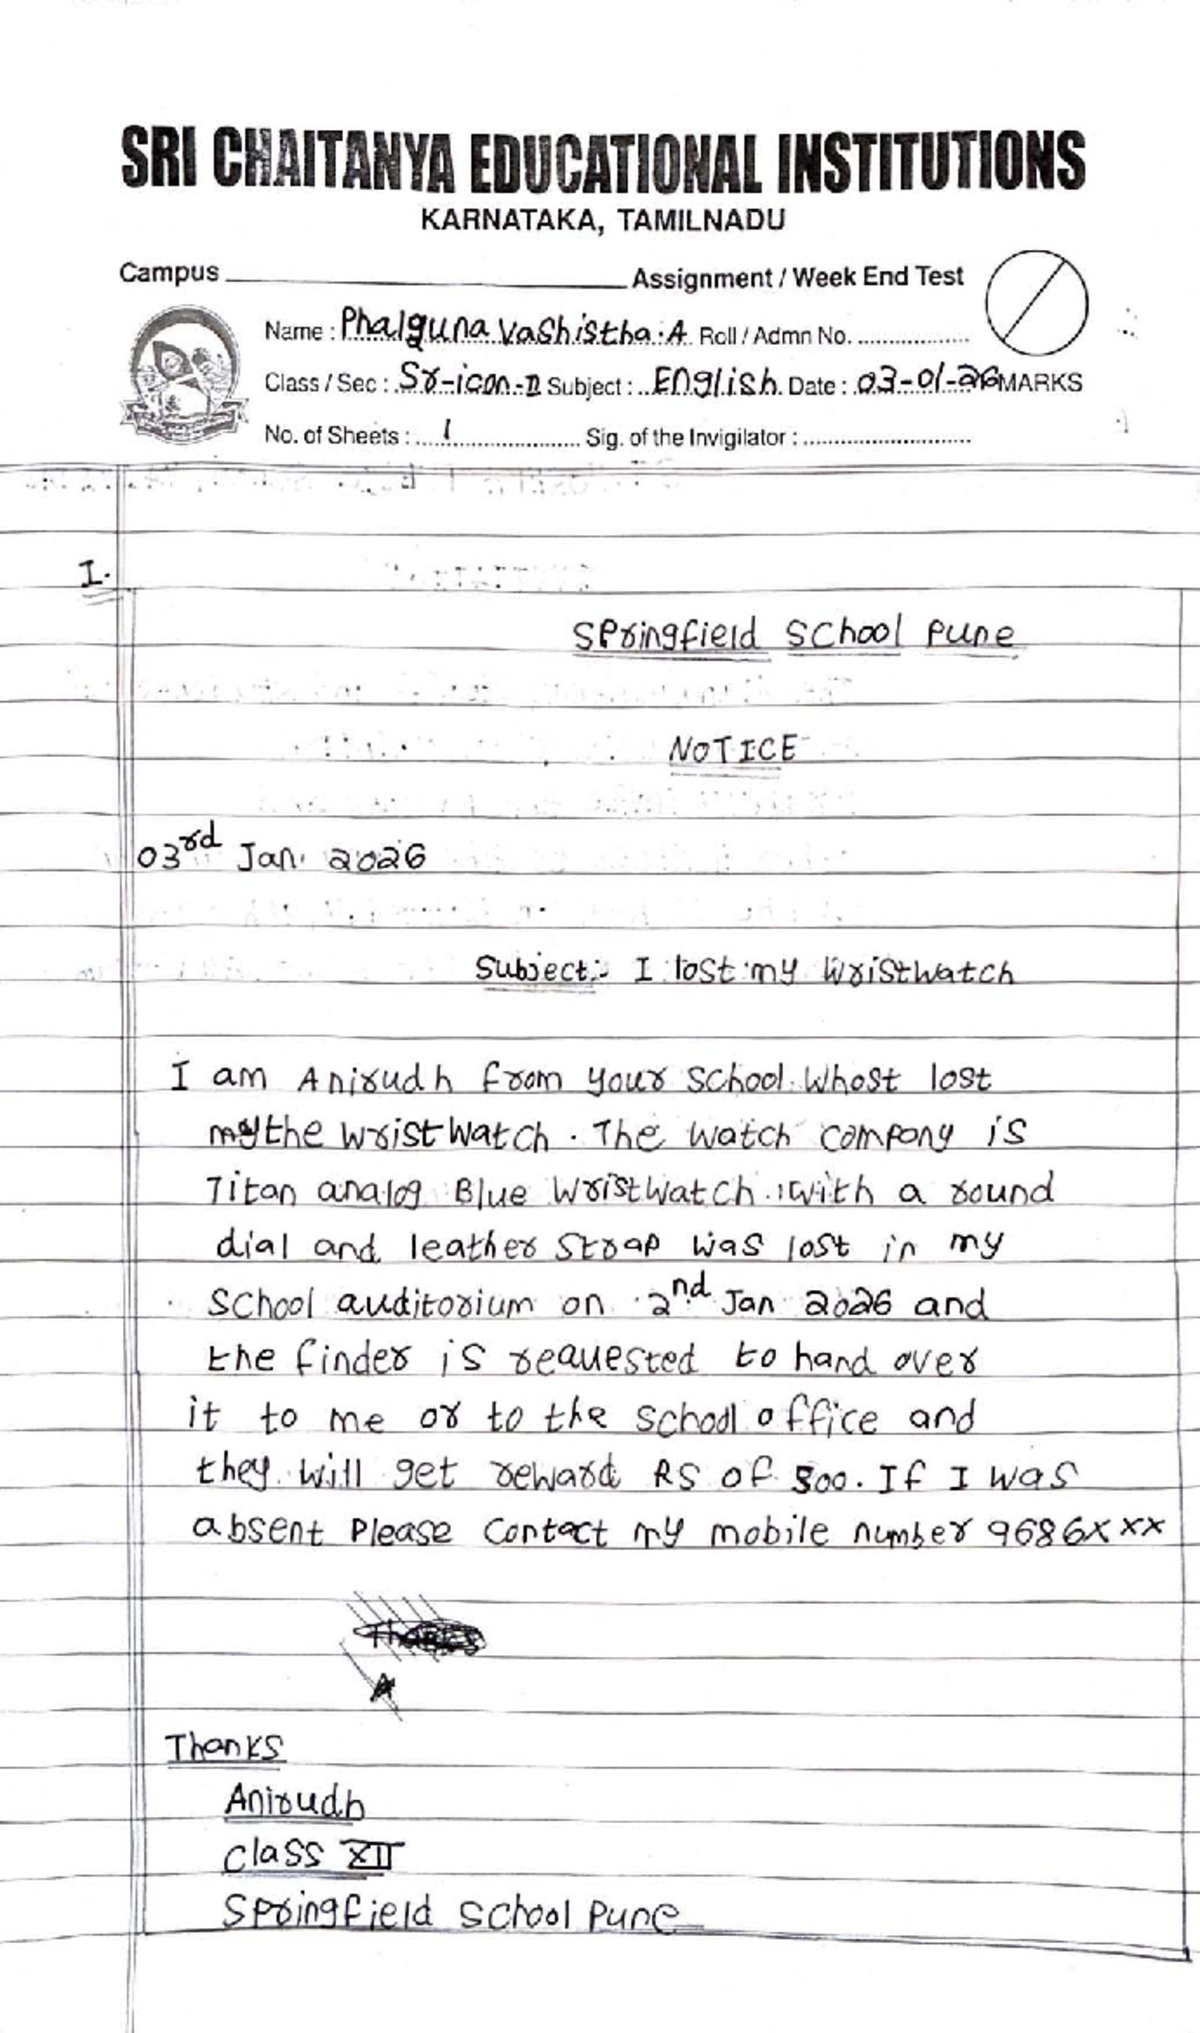 SRI CHAITANYA EDUCATIONAL INSTITUTIONS
KARNATAKA, TAMILNADU
Campus Assignment / Week End Test
Name : Phalguna Vashistha.A Roll / Admn No.
Class / Sec : Sr-icon-II Subject : English Date : 03-01-26 MARKS
No. of Sheets : 1 Sig. of the Invigilator :
I.
Springfield School Pune
NOTICE
03rd Jan. 2026
Subject:- I lost my Wristwatch
I am Anirudh from your School. Whost lost
the Wristwatch. The Watch Company is
Titan analog Blue Wristwatch. with a round
dial and leather Strap Was lost in my
School auditorium on 2nd Jan 2026 and
the finder is requested to hand over
it to me or to the School office and
they will get reward RS of 500. If I was
absent Please Contact my mobile number 9686XXX
Thanks
Anirudh
Class XII
Springfield School Pune